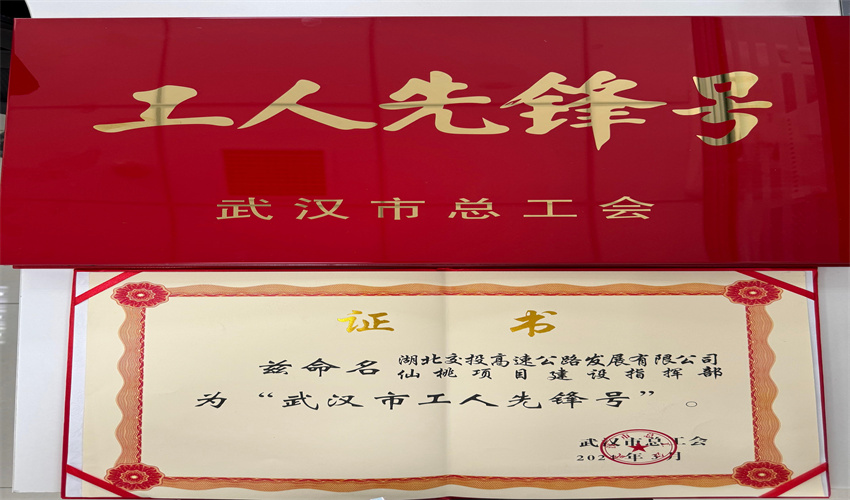 工人先锋号
武汉市总工会
证 书
兹命名 湖北交投高速公路发展有限公司
仙桃项目建设指挥部
为“武汉市工人先锋号”。
武汉市总工会